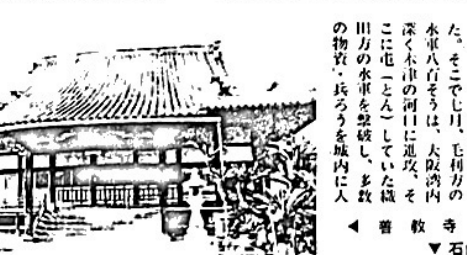 た。そこで七月、毛利方の
水軍八百そうは、大阪湾内
深く木津の河口に進攻、そ
こに屯（とん）していた織
田方の水軍を撃破し、多数
の物資・兵ろうを城内に入
◀ 善教寺
▼ 石